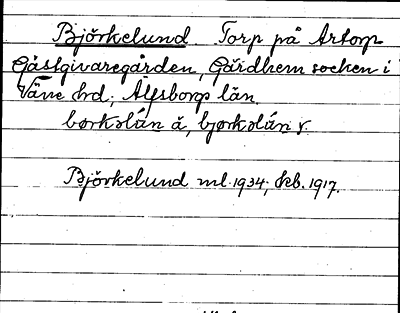 Björkelund Torp på Artorp
Gästgivaregården, Gärdhem socken i
Väne hd, Älfsborgs län.
börkslún å, bjorkslún r.
Björkelund ml. 1934; kb. 1917.